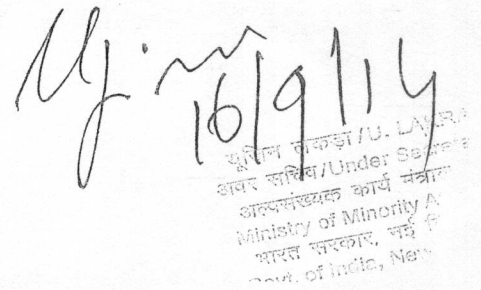 16/9/14
यूजिन लकड़ा/U. LAKRA
अवर सचिव/Under Secreta
अल्पसंख्यक कार्य मंत्राल
Ministry of Minority A
भारत सरकार, नई दि
Govt. of India, New